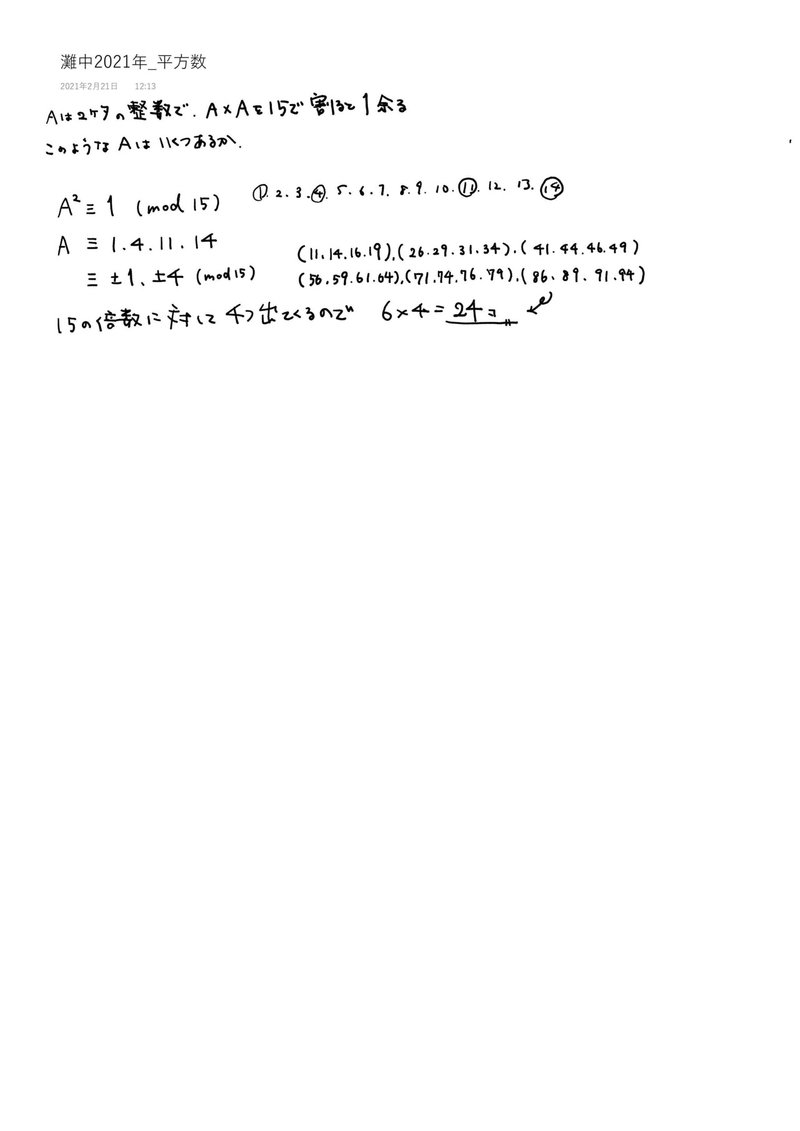 灘中2021年_平方数
2021年2月21日 12:13
Aは2ケタの整数で、A×Aを15で割ると1余る
このようなAはいくつあるか.
A²≡1 (mod 15)
1. 2. 3. 4. 5. 6. 7. 8. 9. 10. 11. 12. 13. 14
A ≡ 1. 4. 11. 14
≡ ±1、±4 (mod 15)
(11. 14. 16. 19), (26. 29. 31. 34). (41. 44. 46. 49)
(56. 59. 61. 64), (71. 74. 76. 79), (86、89、91. 94)
15の倍数に対して4つ出てくるので 6×4=24コ